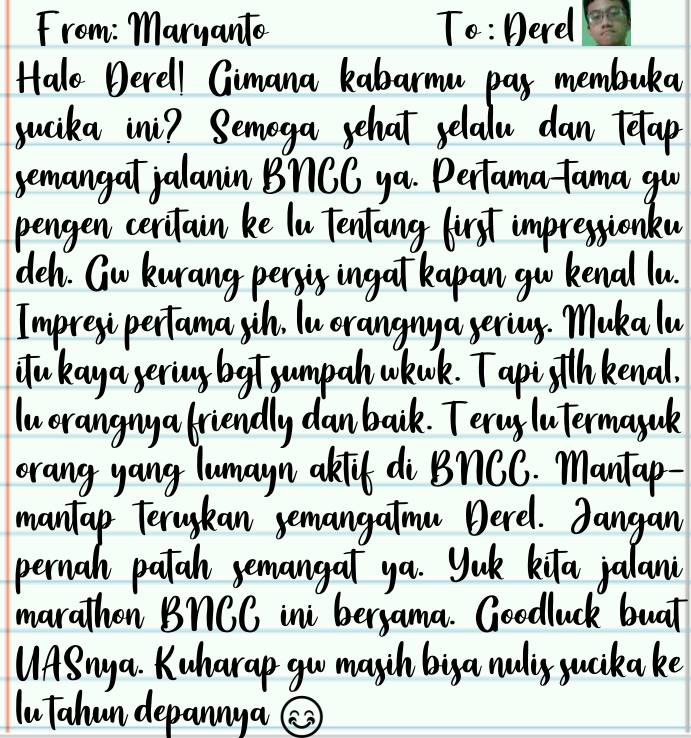 From: Maryanto To : Derel
Halo Derel! Gimana kabarmu pas membuka
sucika ini? Semoga sehat selalu dan tetap
semangat jalanin BNCC ya. Pertama-tama gw
pengen ceritain ke lu tentang first impressionku
deh. Gw kurang persis ingat kapan gw kenal lu.
Impresi pertama sih, lu orangnya serius. Muka lu
itu kaya serius bgt sumpah wkwk. Tapi stlh kenal,
lu orangnya friendly dan baik. Terus lu termasuk
orang yang lumayn aktif di BNCC. Mantap-
mantap teruskan semangatmu Derel. Jangan
pernah patah semangat ya. Yuk kita jalani
marathon BNCC ini bersama. Goodluck buat
UASnya. Kuharap gw masih bisa nulis sucika ke
lu tahun depannya 😊